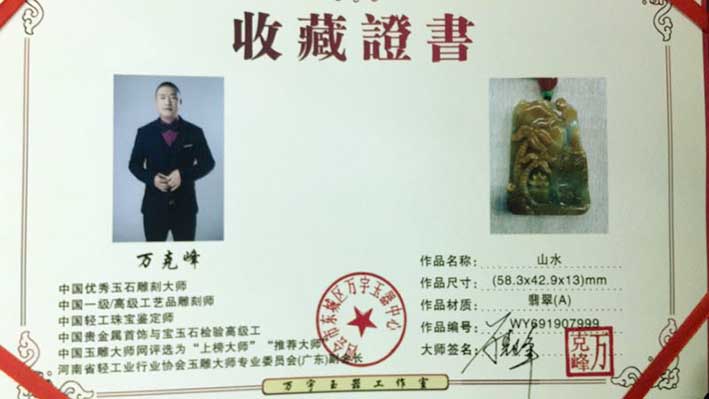 收藏證書
万克峰
中国优秀玉石雕刻大师
中国一级/高级工艺品雕刻师
中国轻工珠宝鉴定师
中国贵金属首饰与宝玉石检验高级工
中国玉雕大师网评选为“上榜大师”“推荐大师”
河南省轻工业行业协会玉雕大师专业委员会(广东)副会长
作品名称: 山水
作品尺寸: (58.3x42.9x13)mm
作品材质: 翡翠(A)
作品编号: WY691907999
大师签名: 万克峰
万克峰
东城区万宇玉器中心
万宇玉器工作室